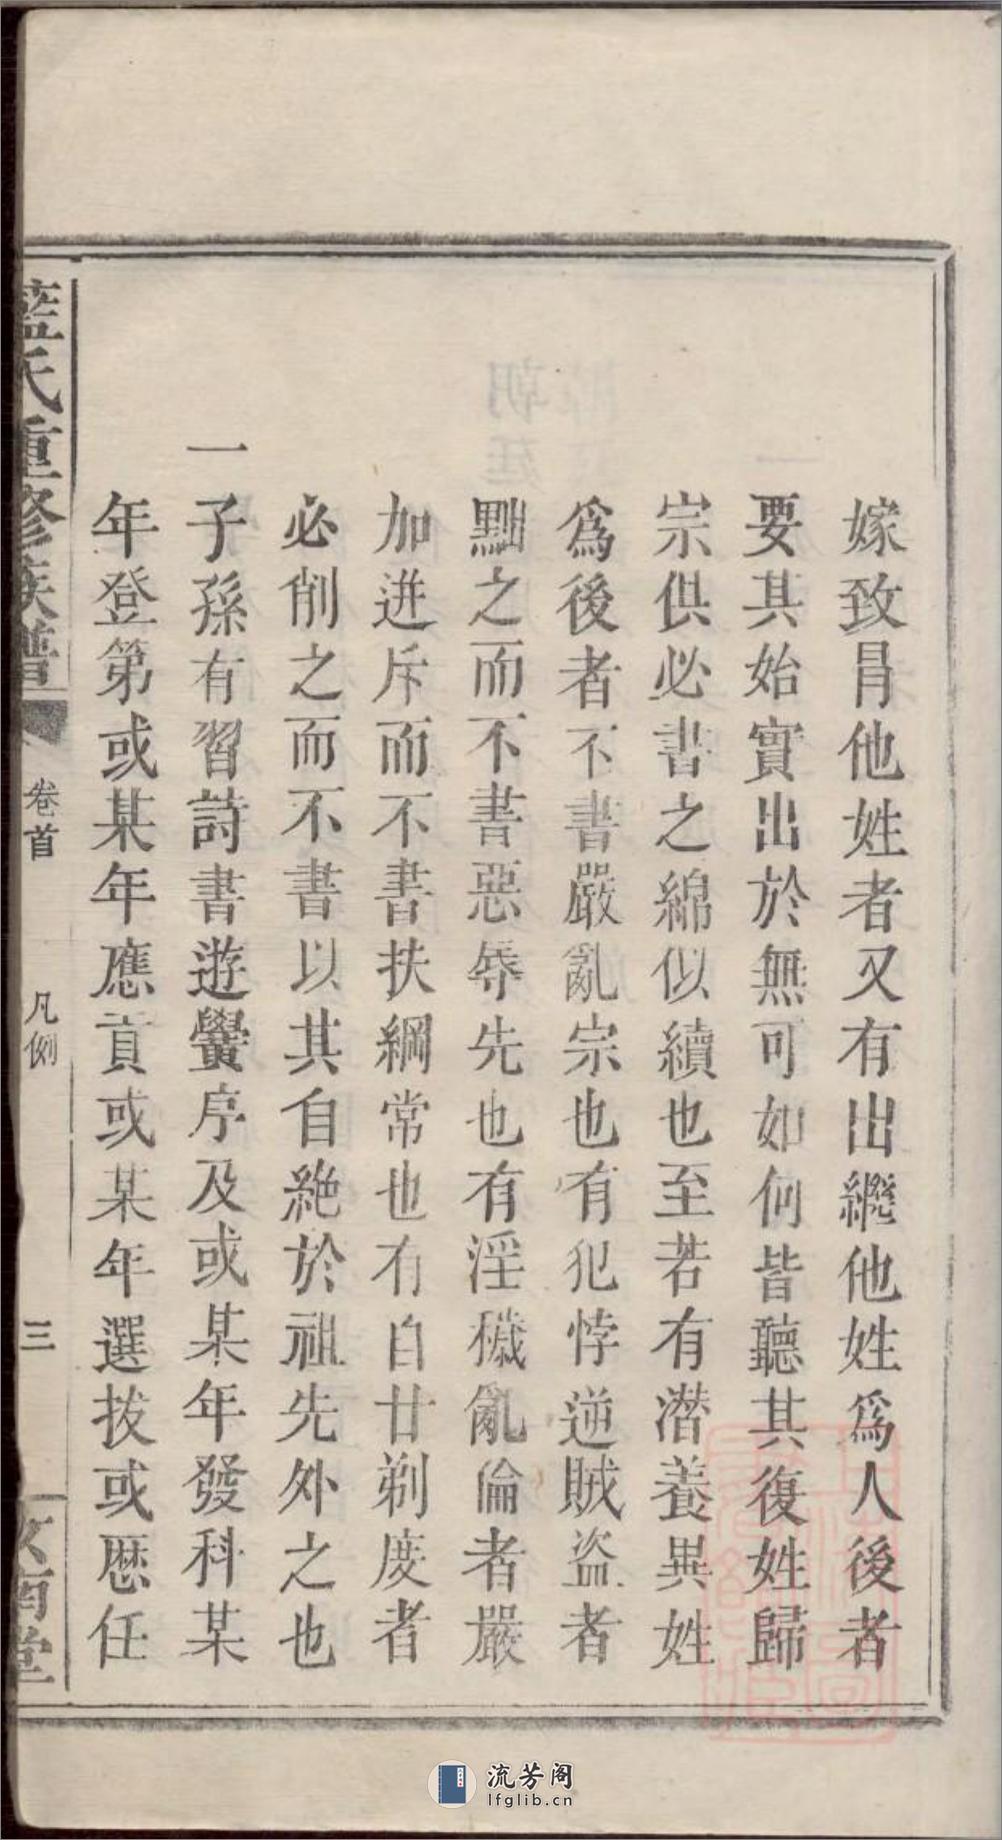 嫁致冐他姓者又有出繼他姓爲人後者
要其始實出於無可如何皆聽其復姓歸
宗俱必書之綿似續也至若有潛養異姓
爲後者不書嚴亂宗也有犯悖逆賊盜者
黜之而不書惡辱先也有淫穢亂倫者嚴
加迸斥而不書扶綱常也有自甘剃度者
必削之而不書以其自絶於祖先外之也
一子孫有習詩書遊黌序及或某年發科某
年登第或某年應貢或某年選拔或歷任
藍氏重修族譜 卷首 凡例 三 汝南堂
流芳阁
lfglib.cn